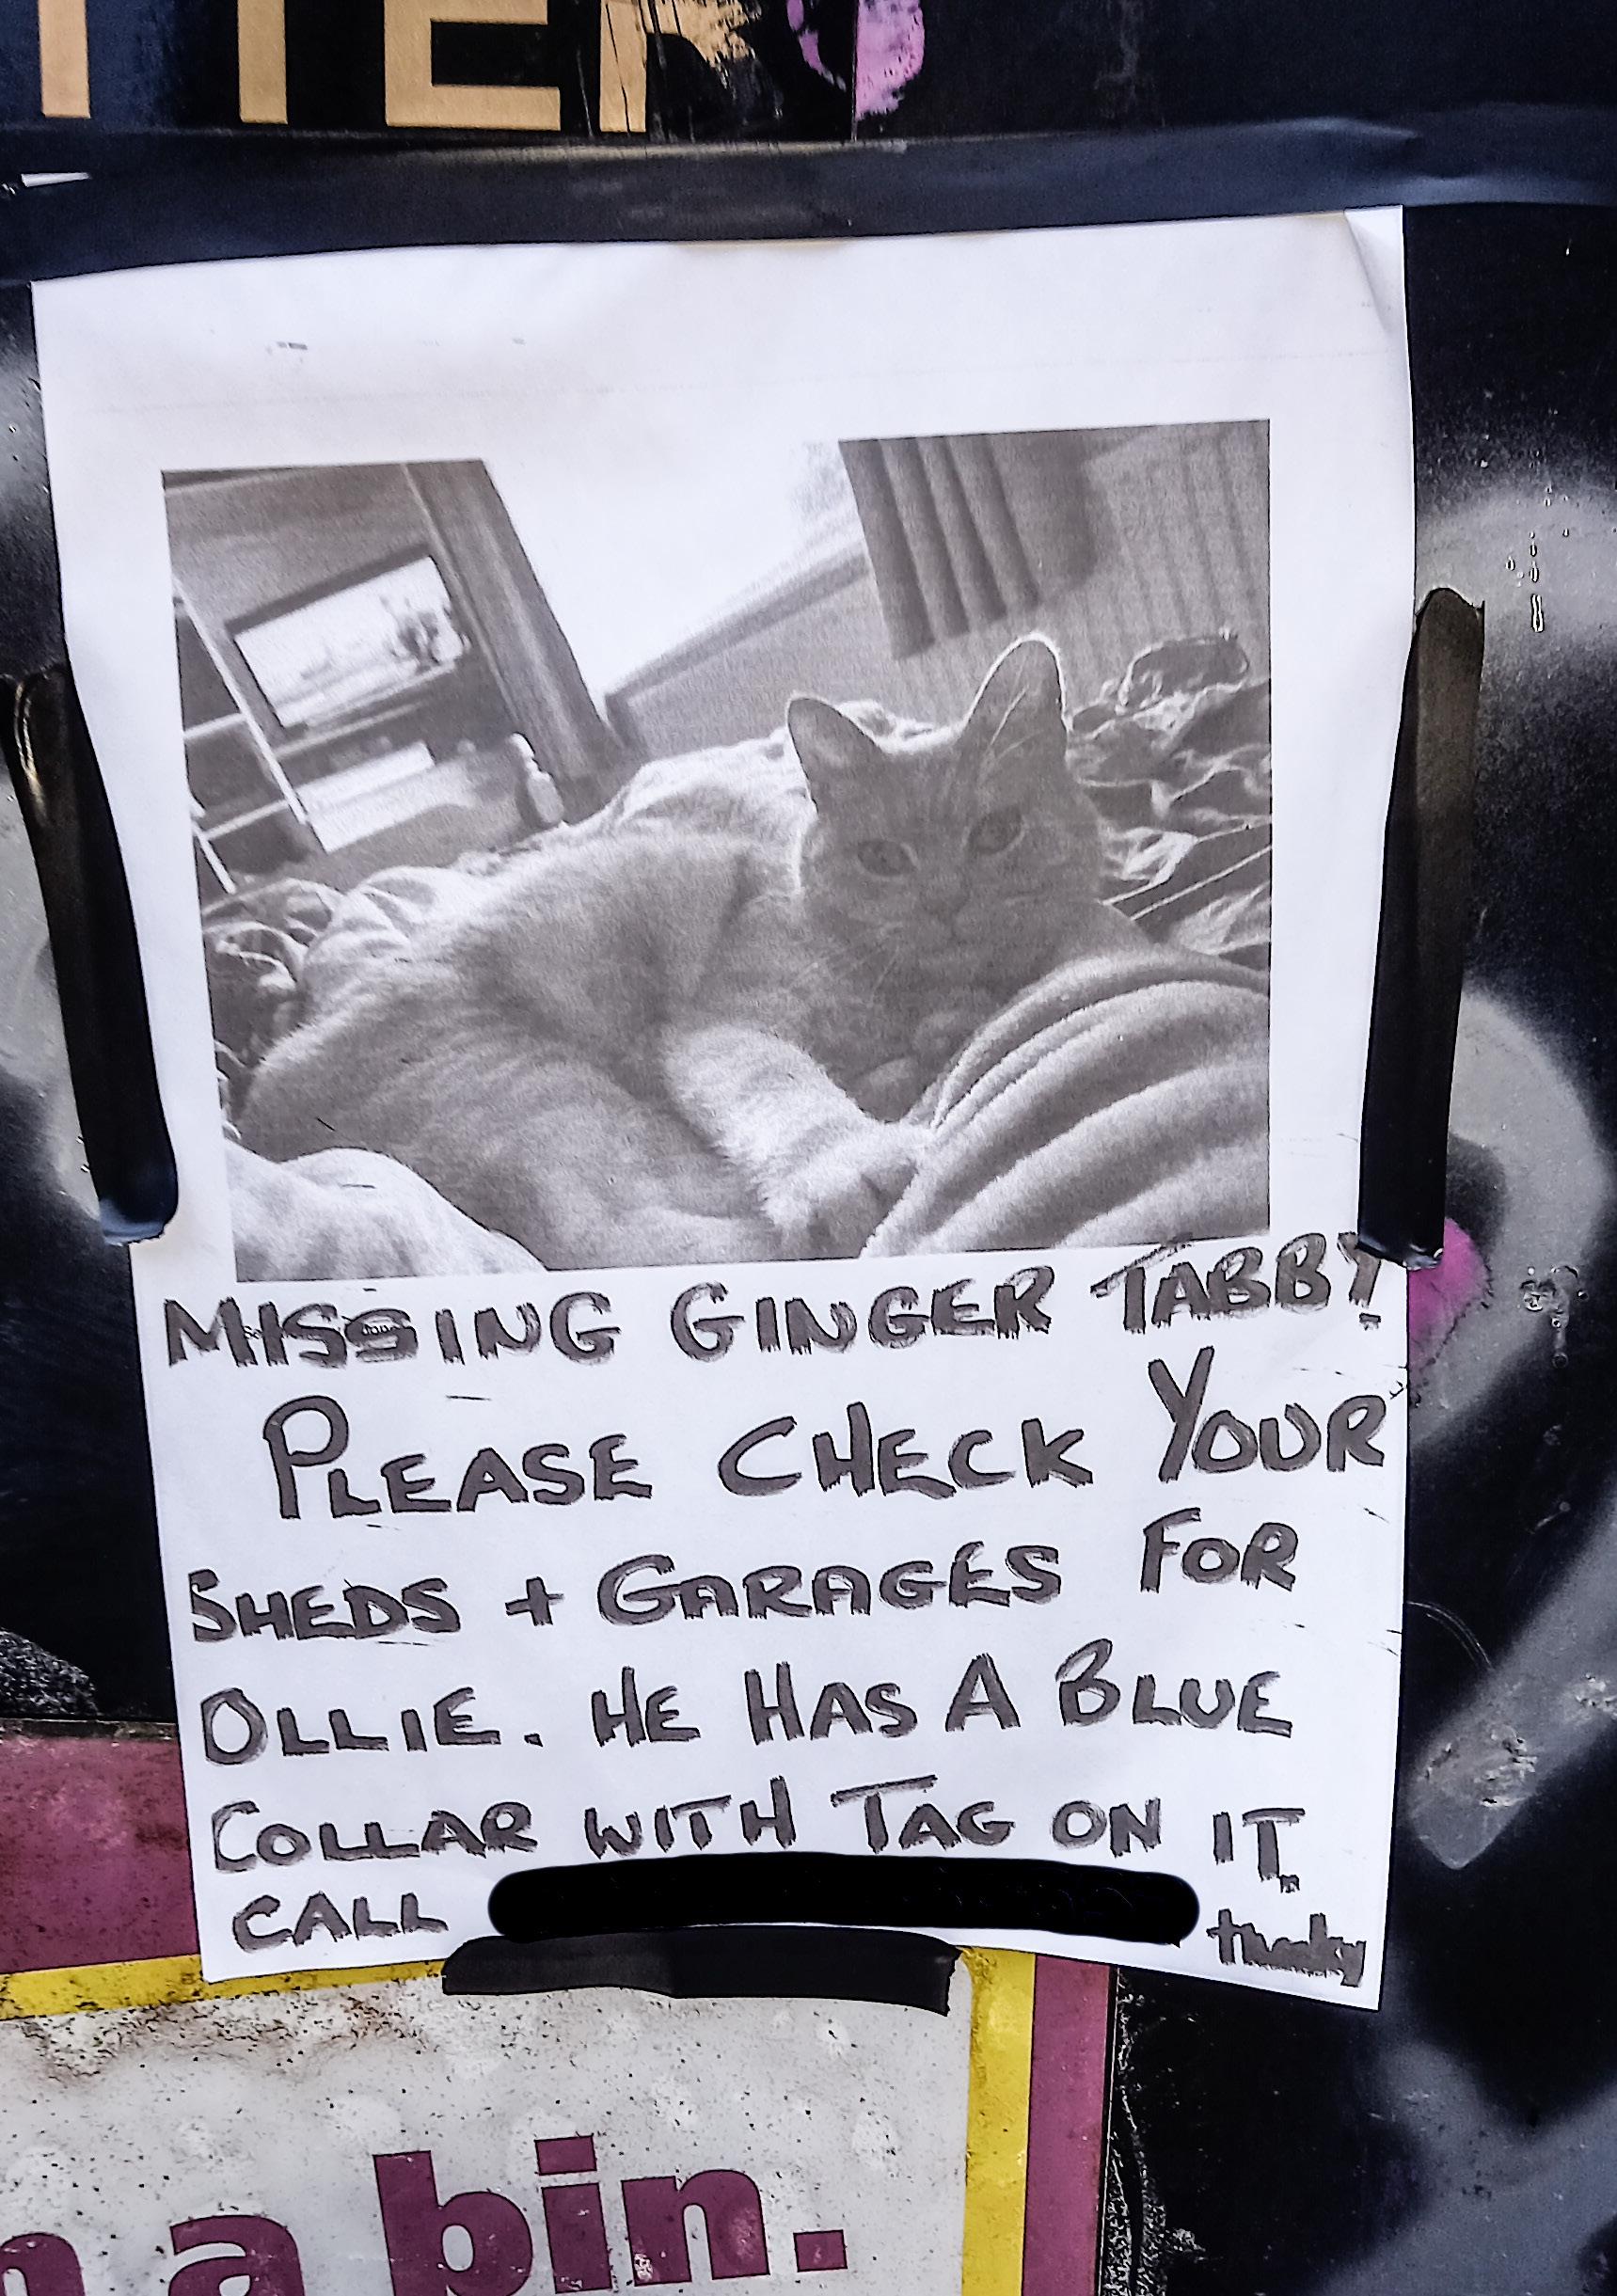 TTER
MISSING GINGER TABBY
PLEASE CHECK YOUR
SHEDS + GARAGES FOR
OLLIE. HE HAS A BLUE
COLLAR WITH TAG ON IT.
CALL
a bin.